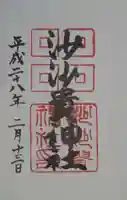 沙沙貴神社
平成二十八年 二月十三日